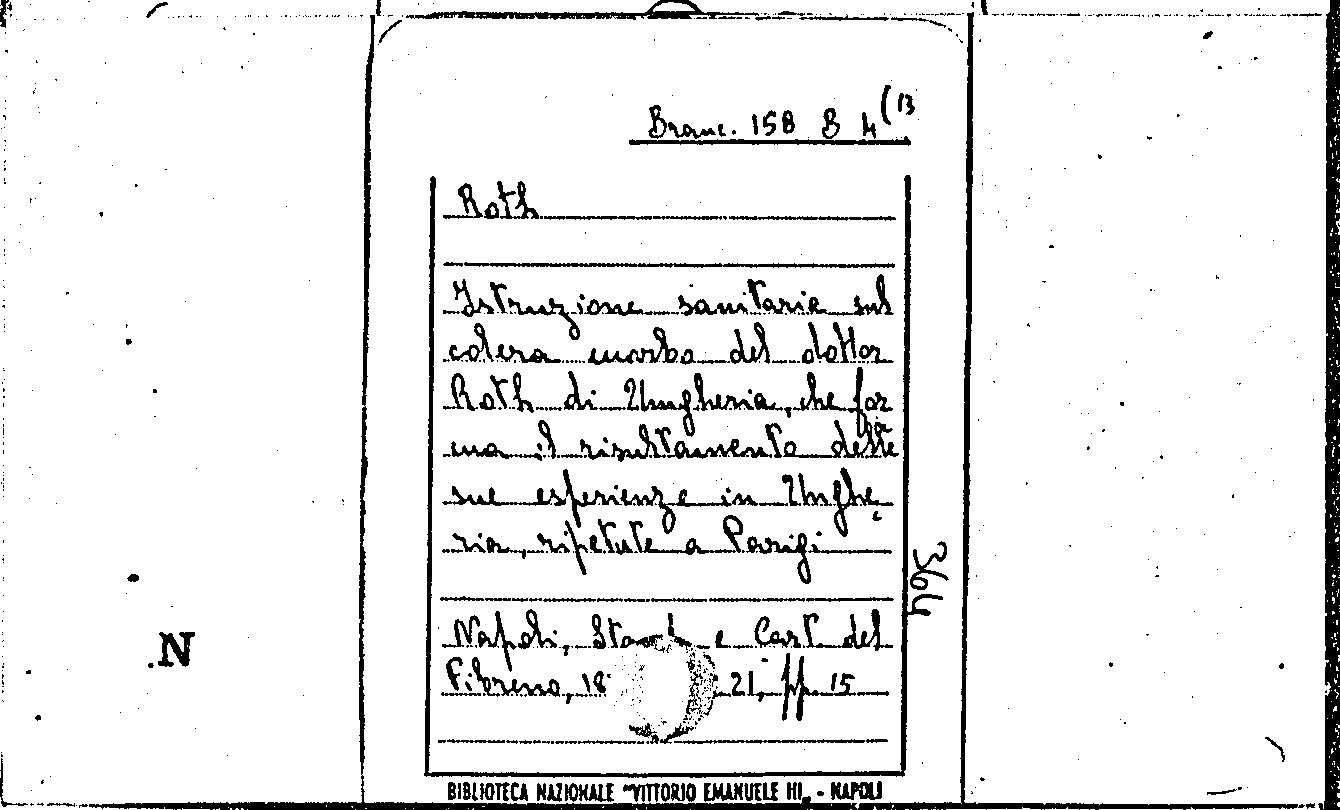 Branc. 158 B 4 (13
Roth
Istruzione sanitarie sul
colera morbo del dottor
Roth di Ungheria, che for
ma il risultamento delle
sue esperienze in Unghe
ria, ripetute a Parigi
364
Napoli, e Cart. del
Fibreno, 18 21, pp. 15
N.
BIBLIOTECA NAZIONALE "VITTORIO EMANUELE III„ - NAPOLI